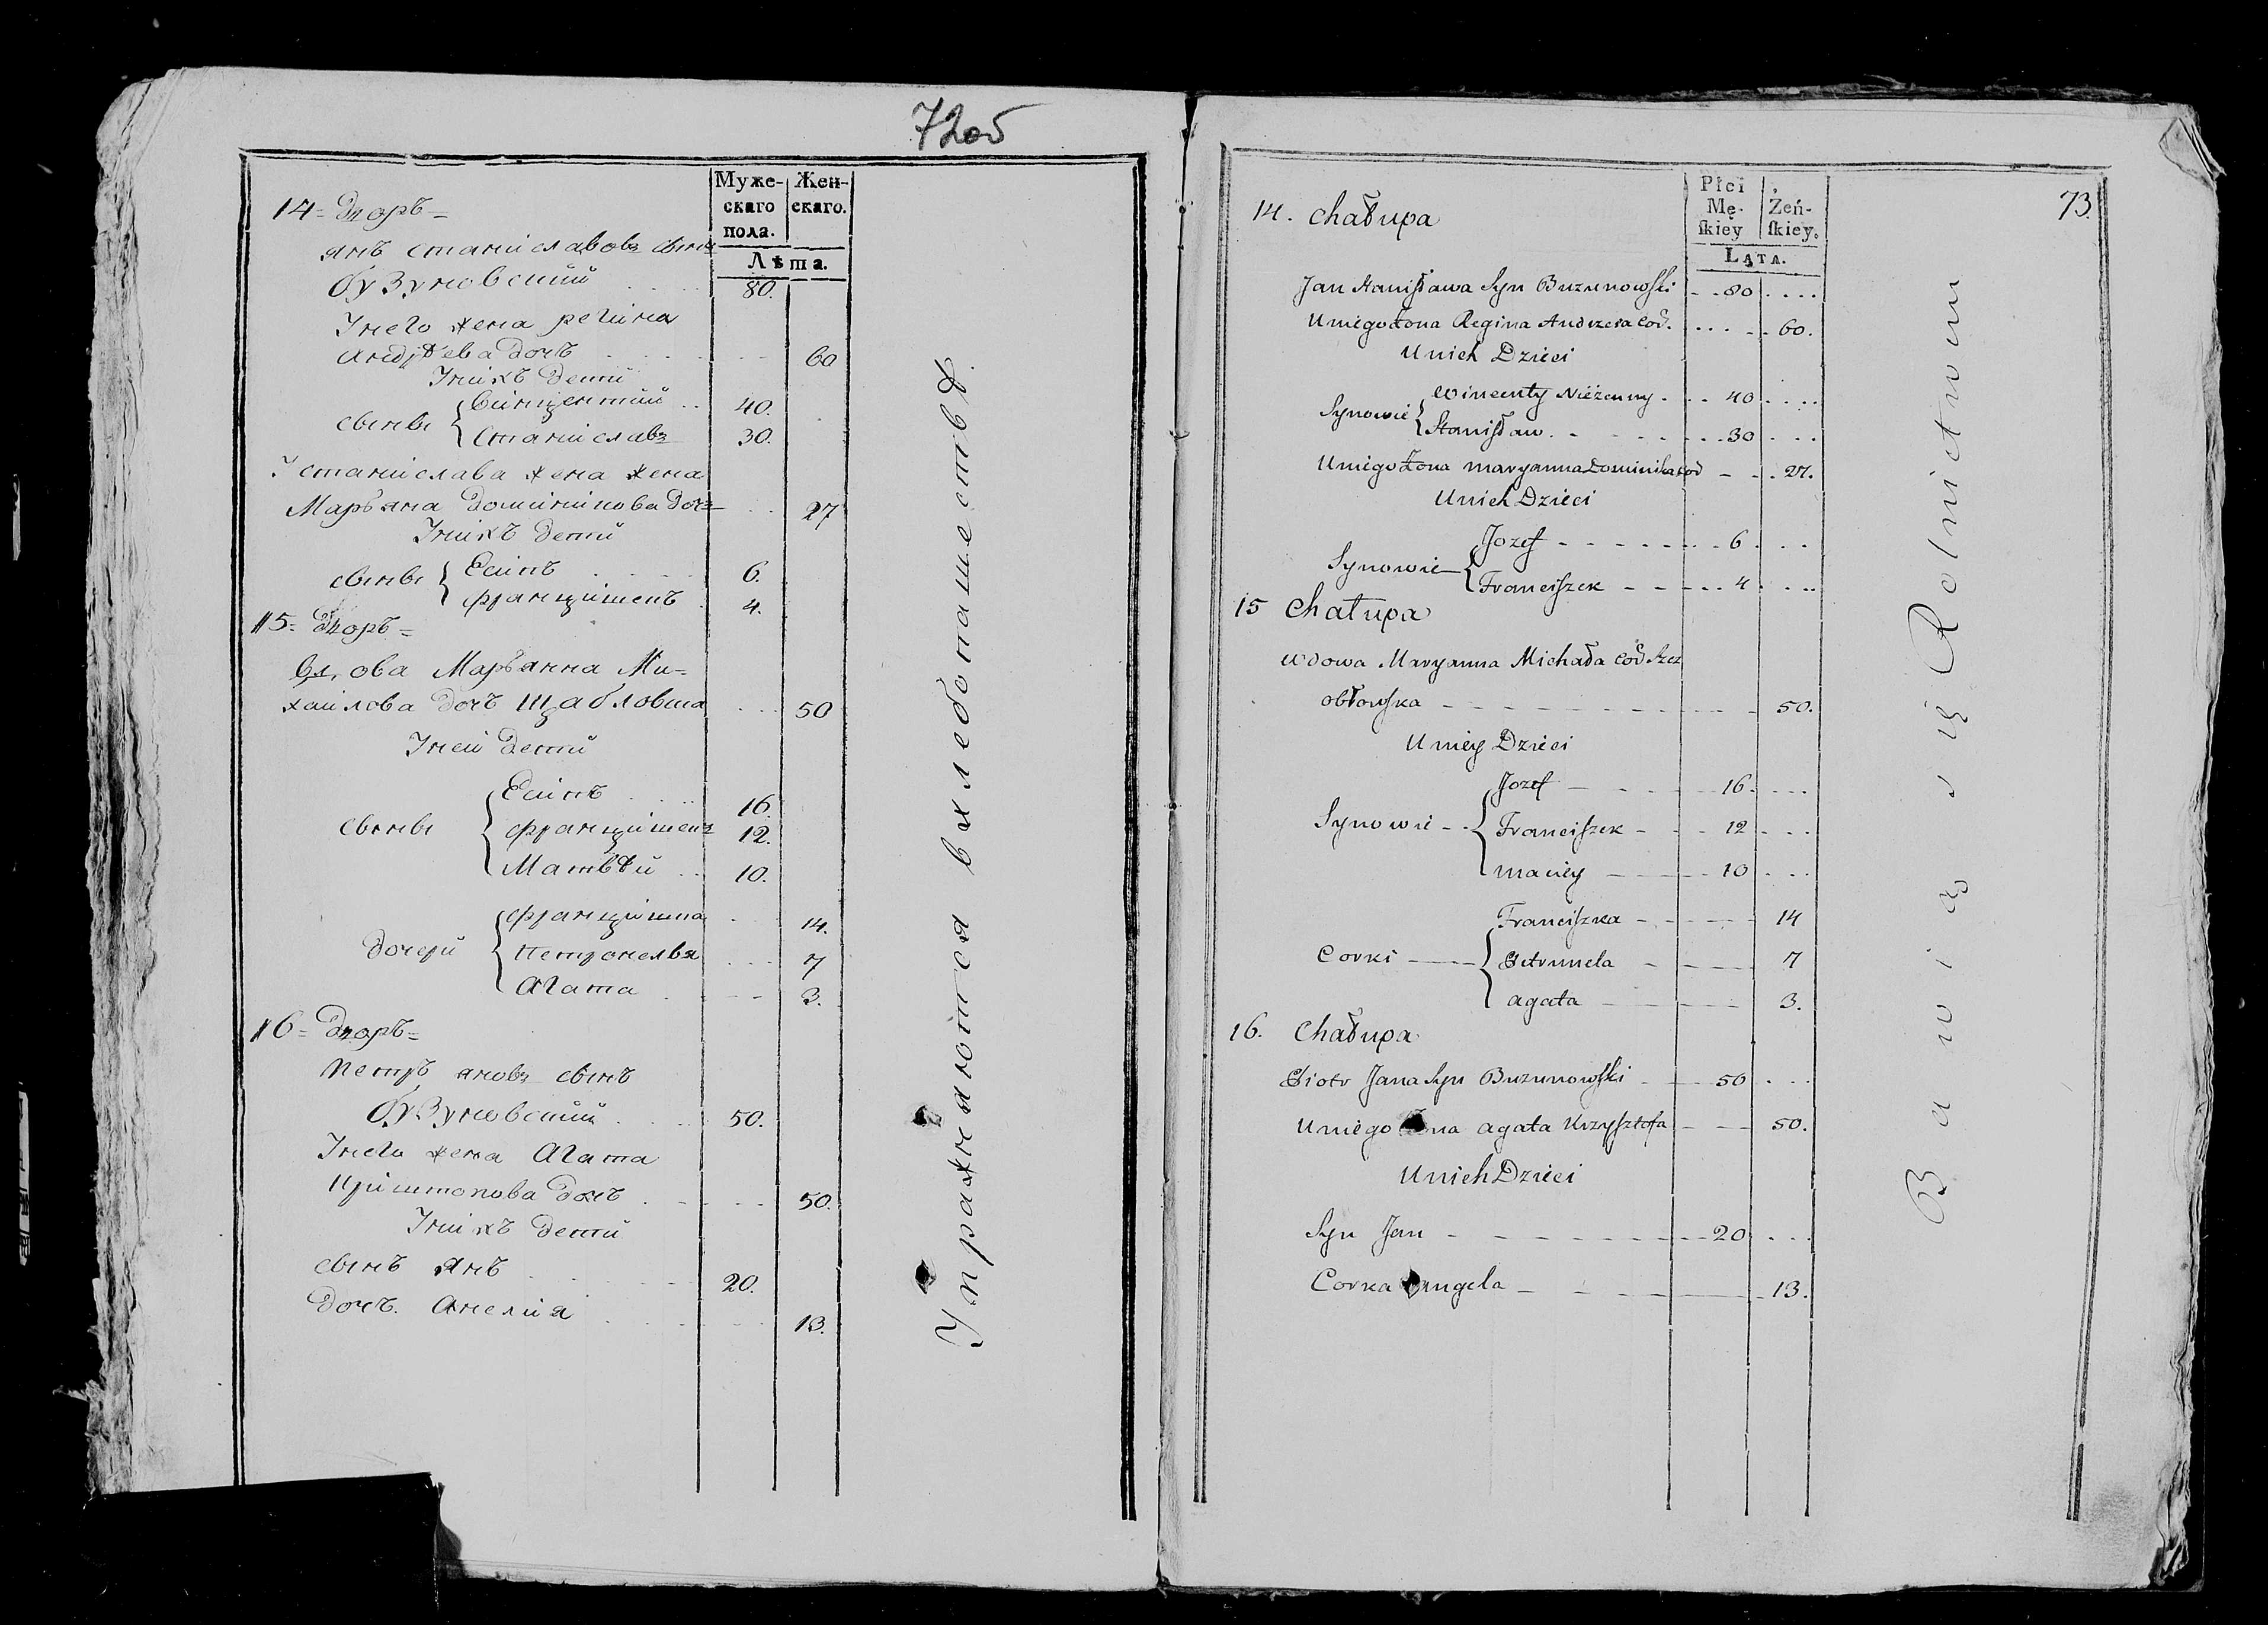 72об
Муже- Жен-
скаго скаго.
пола.
Лѣта.
14= Дворъ=
янъ станиславовъ сынъ
бузуновский 80.
Унего жена регина
андрѣева дочь 60
Унихъ дети
сынвы { Винцентий 40.
Станиславъ 30.
У станислава жена жена
Марьяна доминикова дочь 27
Унихъ дети
сынвы { Есипъ 6.
францишекъ 4.
15= Дворъ=
ова Марьянна Ми=
хайлова дочь щабловска 50
Уней дети
Есипъ 16.
сынвы { францишекъ 12.
Матвѣй 10.
францишка 14.
дочери { Петронеля 7
Агата 3.
16= Дворъ=
Петръ яновъ сынъ
бузуновский 50.
Унего жена Агата
Криштопова дочь 50.
Унихъ дети
сынъ янъ 20.
дочь. Анелия 13.
Упражняются вхлебопашествѣ.
73.
Płci
Mę- Żeń-
skiey skiey.
Lata.
14. Chałupa
Jan Stanisława Syn Buzunowski 80
Uniego Żona Regina Andrzeia Cor. 60.
Unich Dzieci
Wincenty Nieżenny 40
Synowie { Stanisław 30
Uniego Żona Maryanna Dominika Cor 27.
Unich Dzieci
Jozef 6
Synowie { Franciszek 4
15 Chałupa
Wdowa Maryanna Michała Cor Szcz
obłowska 50.
Uniey Dzieci
Jozef 16.
Synowie { Franciszek 12
Maciey 10
Franciszka 14
Corki { Petrunela 7
agata 3.
16. Chałupa
Piotr Jana Syn Buzunowski 50
Uniego Żona agata Krzysztofa 50.
Unich Dzieci
Syn Jan 20
Corka angela 13.
Bawią się Rolnictwem